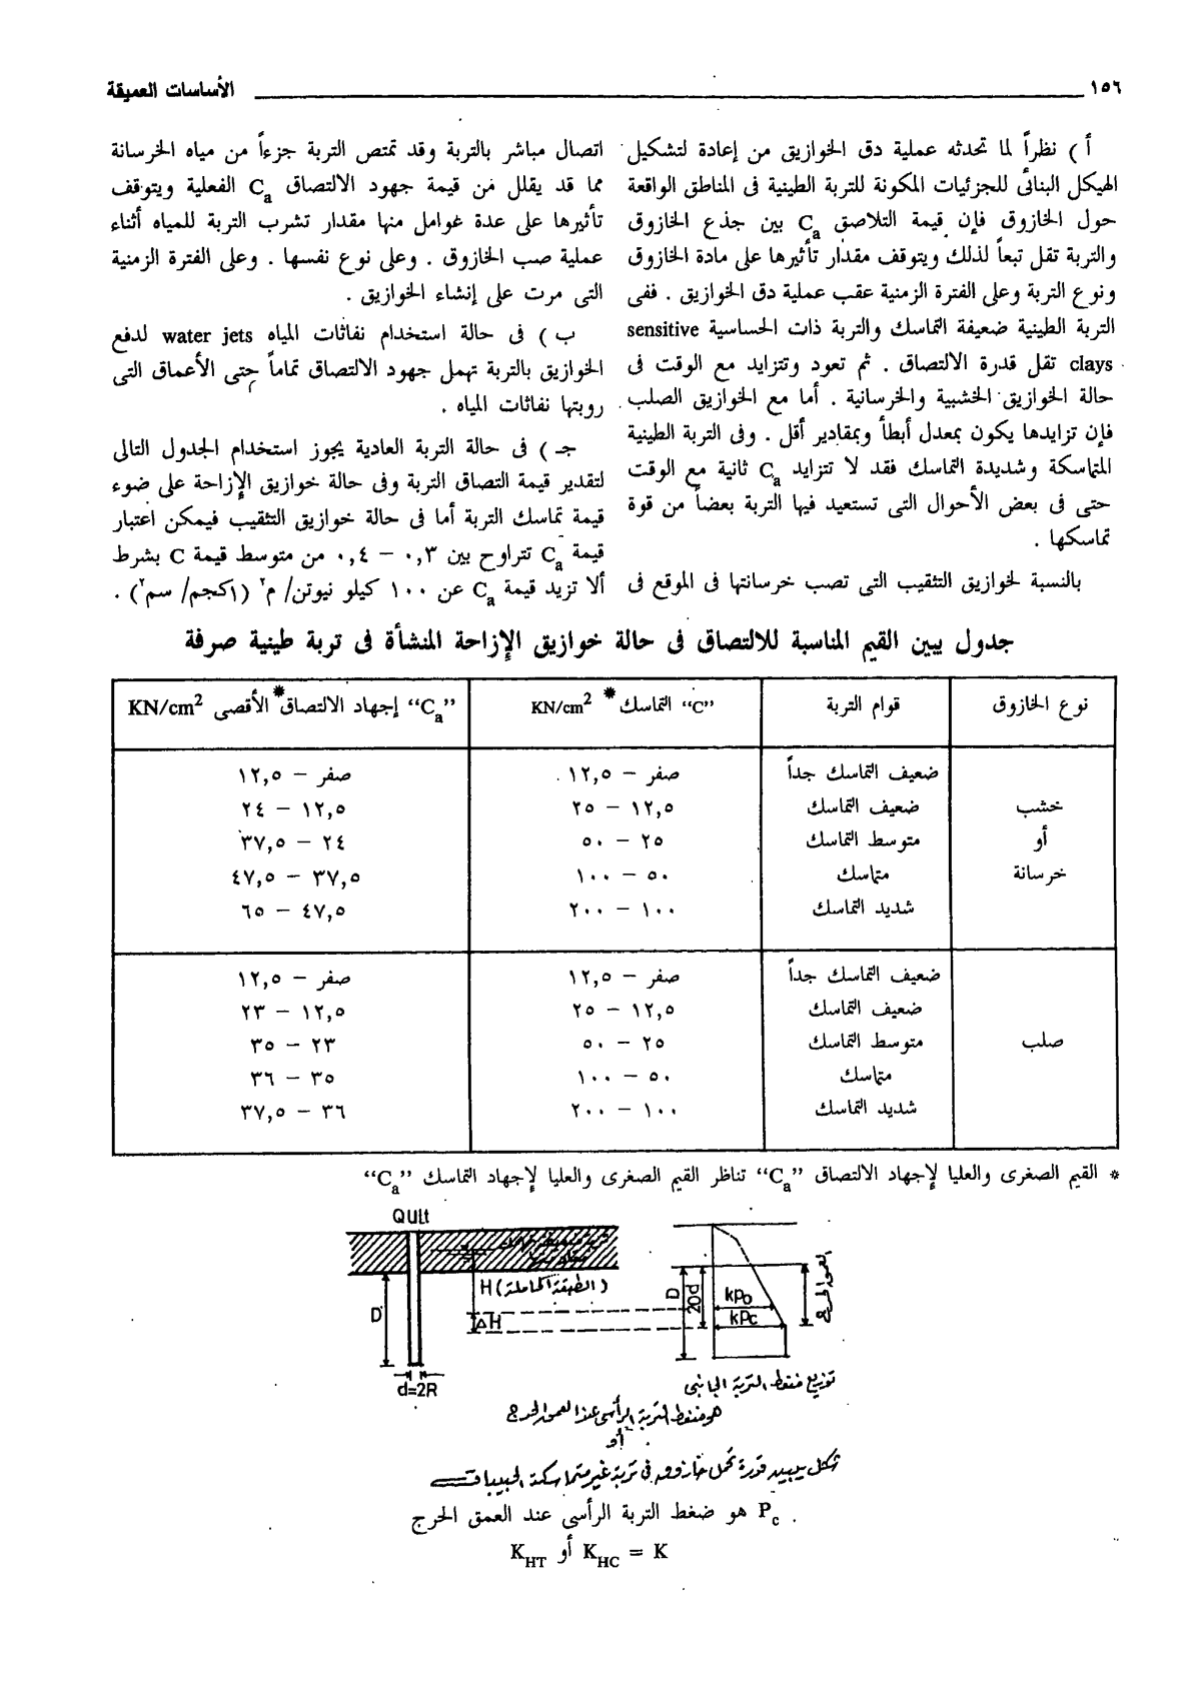 ١٥٦ الأساسات العميقة
أ ) نظراً لما تحدثه عملية دق الخوازيق من إعادة لتشكيل
الهيكل البنائى للجزئيات المكونة للتربة الطينية فى المناطق الواقعة
حول الخازوق فإن قيمة التلاصق Ca بين جذع الخازوق
والتربة تقل تبعاً لذلك ويتوقف مقدار تأثيرها على مادة الخازوق
ونوع التربة وعلى الفترة الزمنية عقب عملية دق الخوازيق . ففى
التربة الطينية ضعيفة التماسك والتربة ذات الحساسية sensitive
clays تقل قدرة الالتصاق . ثم تعود وتتزايد مع الوقت فى
حالة الخوازيق الخشبية والخرسانية . أما مع الخوازيق الصلب
فإن تزايدها يكون بمعدل أبطأ وبمقادير أقل . وفى التربة الطينية
المتماسكة وشديدة التماسك فقد لا تتزايد Ca ثانية مع الوقت
حتى فى بعض الأحوال التى تستعيد فيها التربة بعضاً من قوة
تماسكها .
بالنسبة لخوازيق التثقيب التى تصب خرسانتها فى الموقع فى
اتصال مباشر بالتربة وقد تمتص التربة جزءاً من مياه الخرسانة
مما قد يقلل من قيمة جهود الالتصاق Ca الفعلية ويتوقف
تأثيرها على عدة غوامل منها مقدار تشرب التربة للمياه أثناء
عملية صب الخازوق . وعلى نوع نفسها . وعلى الفترة الزمنية
التى مرت على إنشاء الخوازيق .
ب ) فى حالة استخدام نفاثات المياه water jets لدفع
الخوازيق بالتربة تهمل جهود الالتصاق تماماً حتى الأعماق التى
روبتها نفاثات المياه .
جـ ) فى حالة التربة العادية يجوز استخدام الجدول التالى
لتقدير قيمة التصاق التربة وفى حالة خوازيق الإزاحة على ضوء
قيمة تماسك التربة أما فى حالة خوازيق التثقيب فيمكن اعتبار
قيمة Ca تتراوح بين ٠,٣ – ٠,٤ من متوسط قيمة C بشرط
ألا تزيد قيمة Ca عن ١٠٠ كيلو نيوتن/ م٢ (١كجم/ سم٢) .
جدول يبين القيم المناسبة للالتصاق فى حالة خوازيق الإزاحة المنشأة فى تربة طينية صرفة
نوع الخازوق قوام التربة “C” التماسك * KN/cm2 “Ca” إجهاد الالتصاق* الأقصى KN/cm2
ضعيف التماسك جداً صفر – ١٢,٥ صفر – ١٢,٥
خشب ضعيف التماسك ١٢,٥ – ٢٥ ١٢,٥ – ٢٤
أو متوسط التماسك ٢٥ – ٥٠ ٢٤ – ٣٧,٥
خرسانة متماسك ٥٠ – ١٠٠ ٣٧,٥ – ٤٧,٥
شديد التماسك ١٠٠ – ٢٠٠ ٤٧,٥ – ٦٥
ضعيف التماسك جداً صفر – ١٢,٥ صفر – ١٢,٥
ضعيف التماسك ١٢,٥ – ٢٥ ١٢,٥ – ٢٣
صلب متوسط التماسك ٢٥ – ٥٠ ٢٣ – ٣٥
متماسك ٥٠ – ١٠٠ ٣٥ – ٣٦
شديد التماسك ١٠٠ – ٢٠٠ ٣٦ – ٣٧,٥
* القيم الصغرى والعليا لإجهاد الالتصاق “Ca” تناظر القيم الصغرى والعليا لإجهاد التماسك “Ca”
Qult
H (الطبقة الحاملة)
ΔH
D
d=2R
D
20d
kpo
kpc
العمق الحرج
توزيع ضغط التربة الجانبى
هو ضغط التربة الرأسى عند العمق الحرج
أو
شكل يبين قدرة تحمل خازوق فى تربة غير متماسكة الحبيبات
Pc هو ضغط التربة الرأسى عند العمق الحرج .
KHT أو KHC = K